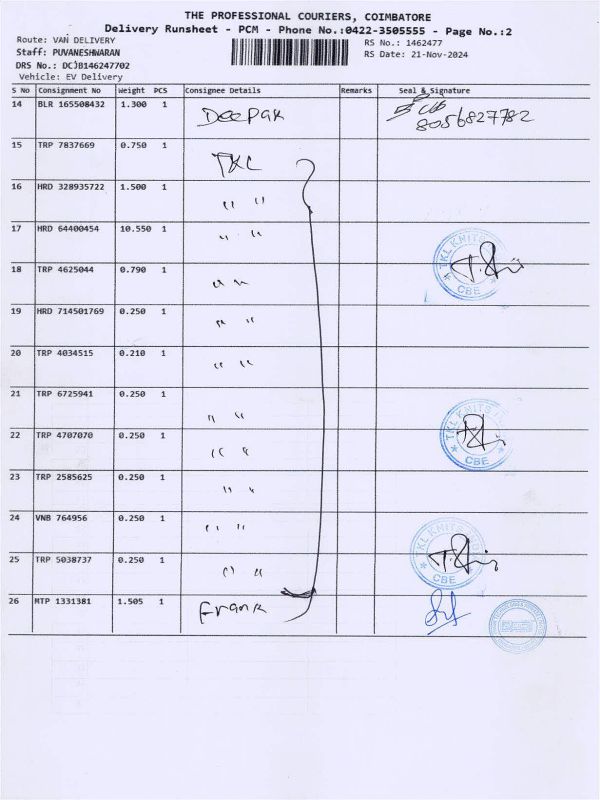 THE PROFESSIONAL COURIERS, COIMBATORE
Delivery Runsheet - PCM - Phone No.:0422-3505555 - Page No.:2
Route: VAN DELIVERY
RS No.: 1462477
Staff: PUVANESHWARAN
RS Date: 21-Nov-2024
DRS No.: DCJB146247702
Vehicle: EV Delivery
S No Consignment No Weight PCS Consignee Details Remarks Seal & Signature
14 BLR 165508432 1.300 1 Deepak 8056827782
15 TRP 7837669 0.750 1 TKL
16 HRD 328935722 1.500 1 " "
17 HRD 64400454 10.550 1 " " TKL KNITS CBE
18 TRP 4625044 0.790 1 " "
19 HRD 714501769 0.250 1 " "
20 TRP 4034515 0.210 1 " "
21 TRP 6725941 0.250 1 " " TKL KNITS CBE
22 TRP 4707070 0.250 1 " "
23 TRP 2585625 0.250 1 " "
24 VNB 764956 0.250 1 " " TKL KNITS CBE
25 TRP 5038737 0.250 1 " "
26 MTP 1331381 1.505 1 Frank